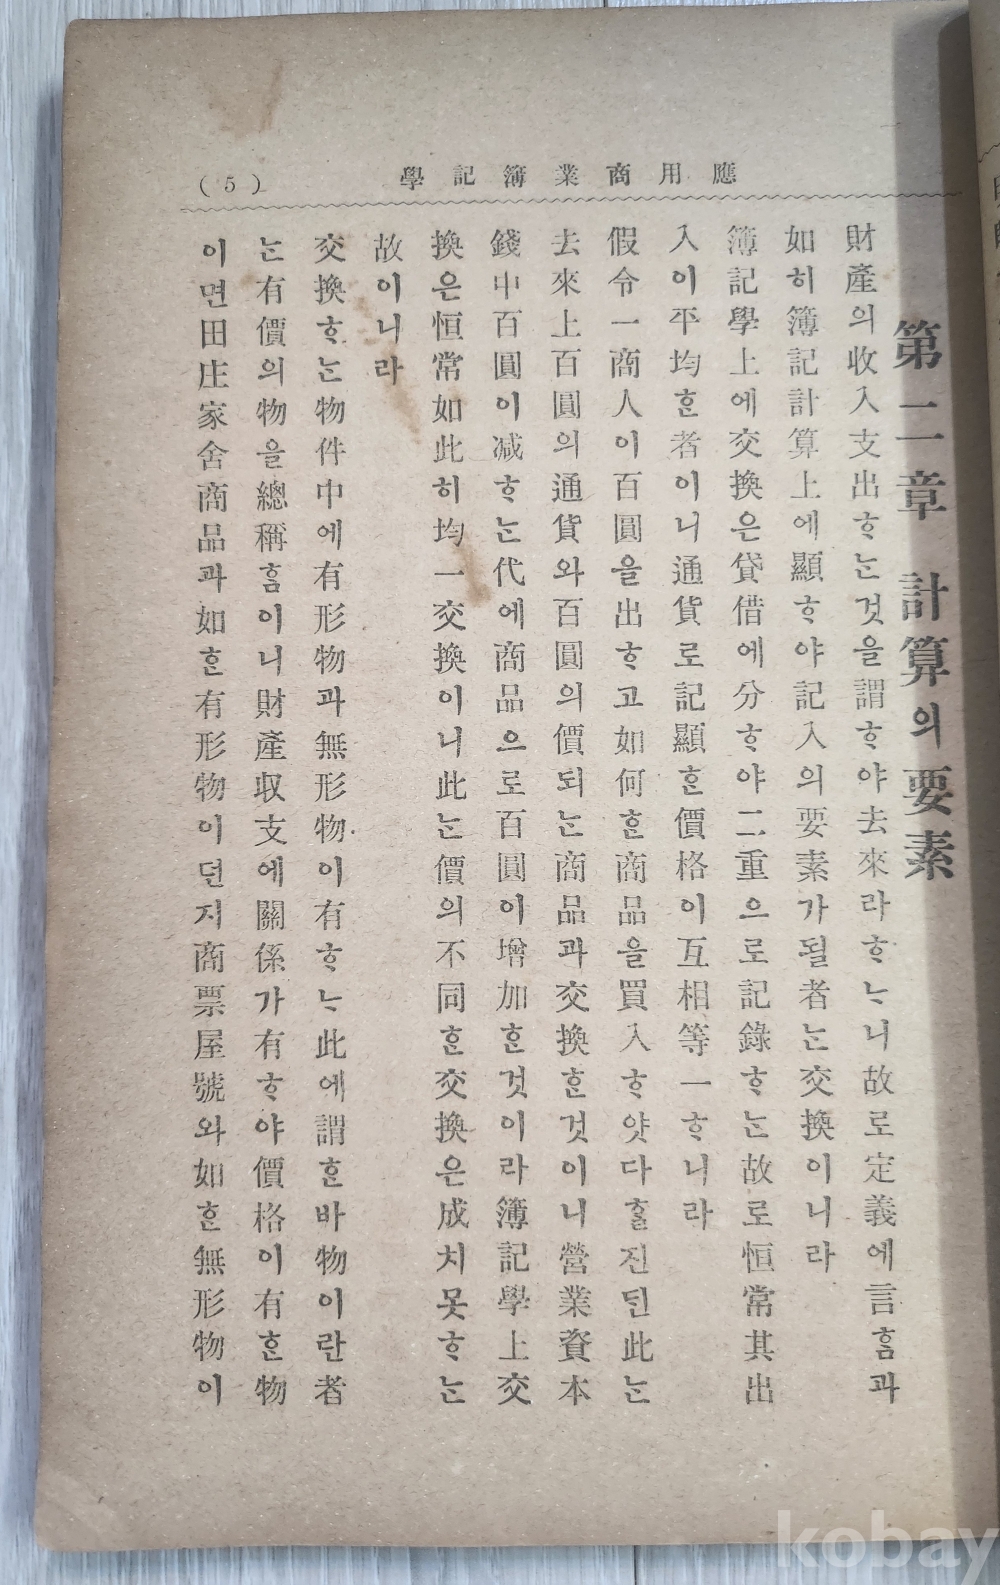 應用商業簿記學
(5)
第二章 計算의要素
財產의收入支出ᄒᆞᄂᆞᆫ것을謂ᄒᆞ야去來라ᄒᆞᄂᆞ니故로定義에言ᄒᆞᆷ과
如히簿記計算上에顯ᄒᆞ야記入의要素가될者ᄂᆞᆫ交換이니라
簿記學上에交換은貸借에分ᄒᆞ야二重으로記錄ᄒᆞᄂᆞᆫ故로恒常其出
入이平均ᄒᆞᆫ者이니通貨로記顯ᄒᆞᆫ價格이互相等一ᄒᆞ니라
假令一商人이百圓을出ᄒᆞ고如何ᄒᆞᆫ商品을買入ᄒᆞ얏다ᄒᆞᆯ진딘此ᄂᆞᆫ
去來上百圓의通貨와百圓의價되ᄂᆞᆫ商品과交換ᄒᆞᆫ것이니營業資本
錢中百圓이減ᄒᆞᄂᆞᆫ代에商品으로百圓이增加ᄒᆞᆫ것이라簿記學上交
換은恒常如此히均一交換이니此ᄂᆞᆫ價의不同ᄒᆞᆫ交換은成치못ᄒᆞᄂᆞᆫ
故이니라
交換ᄒᆞᄂᆞᆫ物件中에有形物과無形物이有ᄒᆞᄂᆞ此에謂ᄒᆞᆫ바物이란者
ᄂᆞᆫ有價의物을總稱ᄒᆞᆷ이니財產収支에關係가有ᄒᆞ야價格이有ᄒᆞᆫ物
이면田庄家舍商品과如ᄒᆞᆫ有形物이던지商票屋號와如ᄒᆞᆫ無形物이
kobay